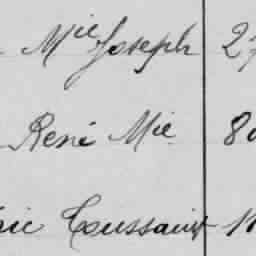 Mie Joseph 27
René Mie 80
Toussaint 1